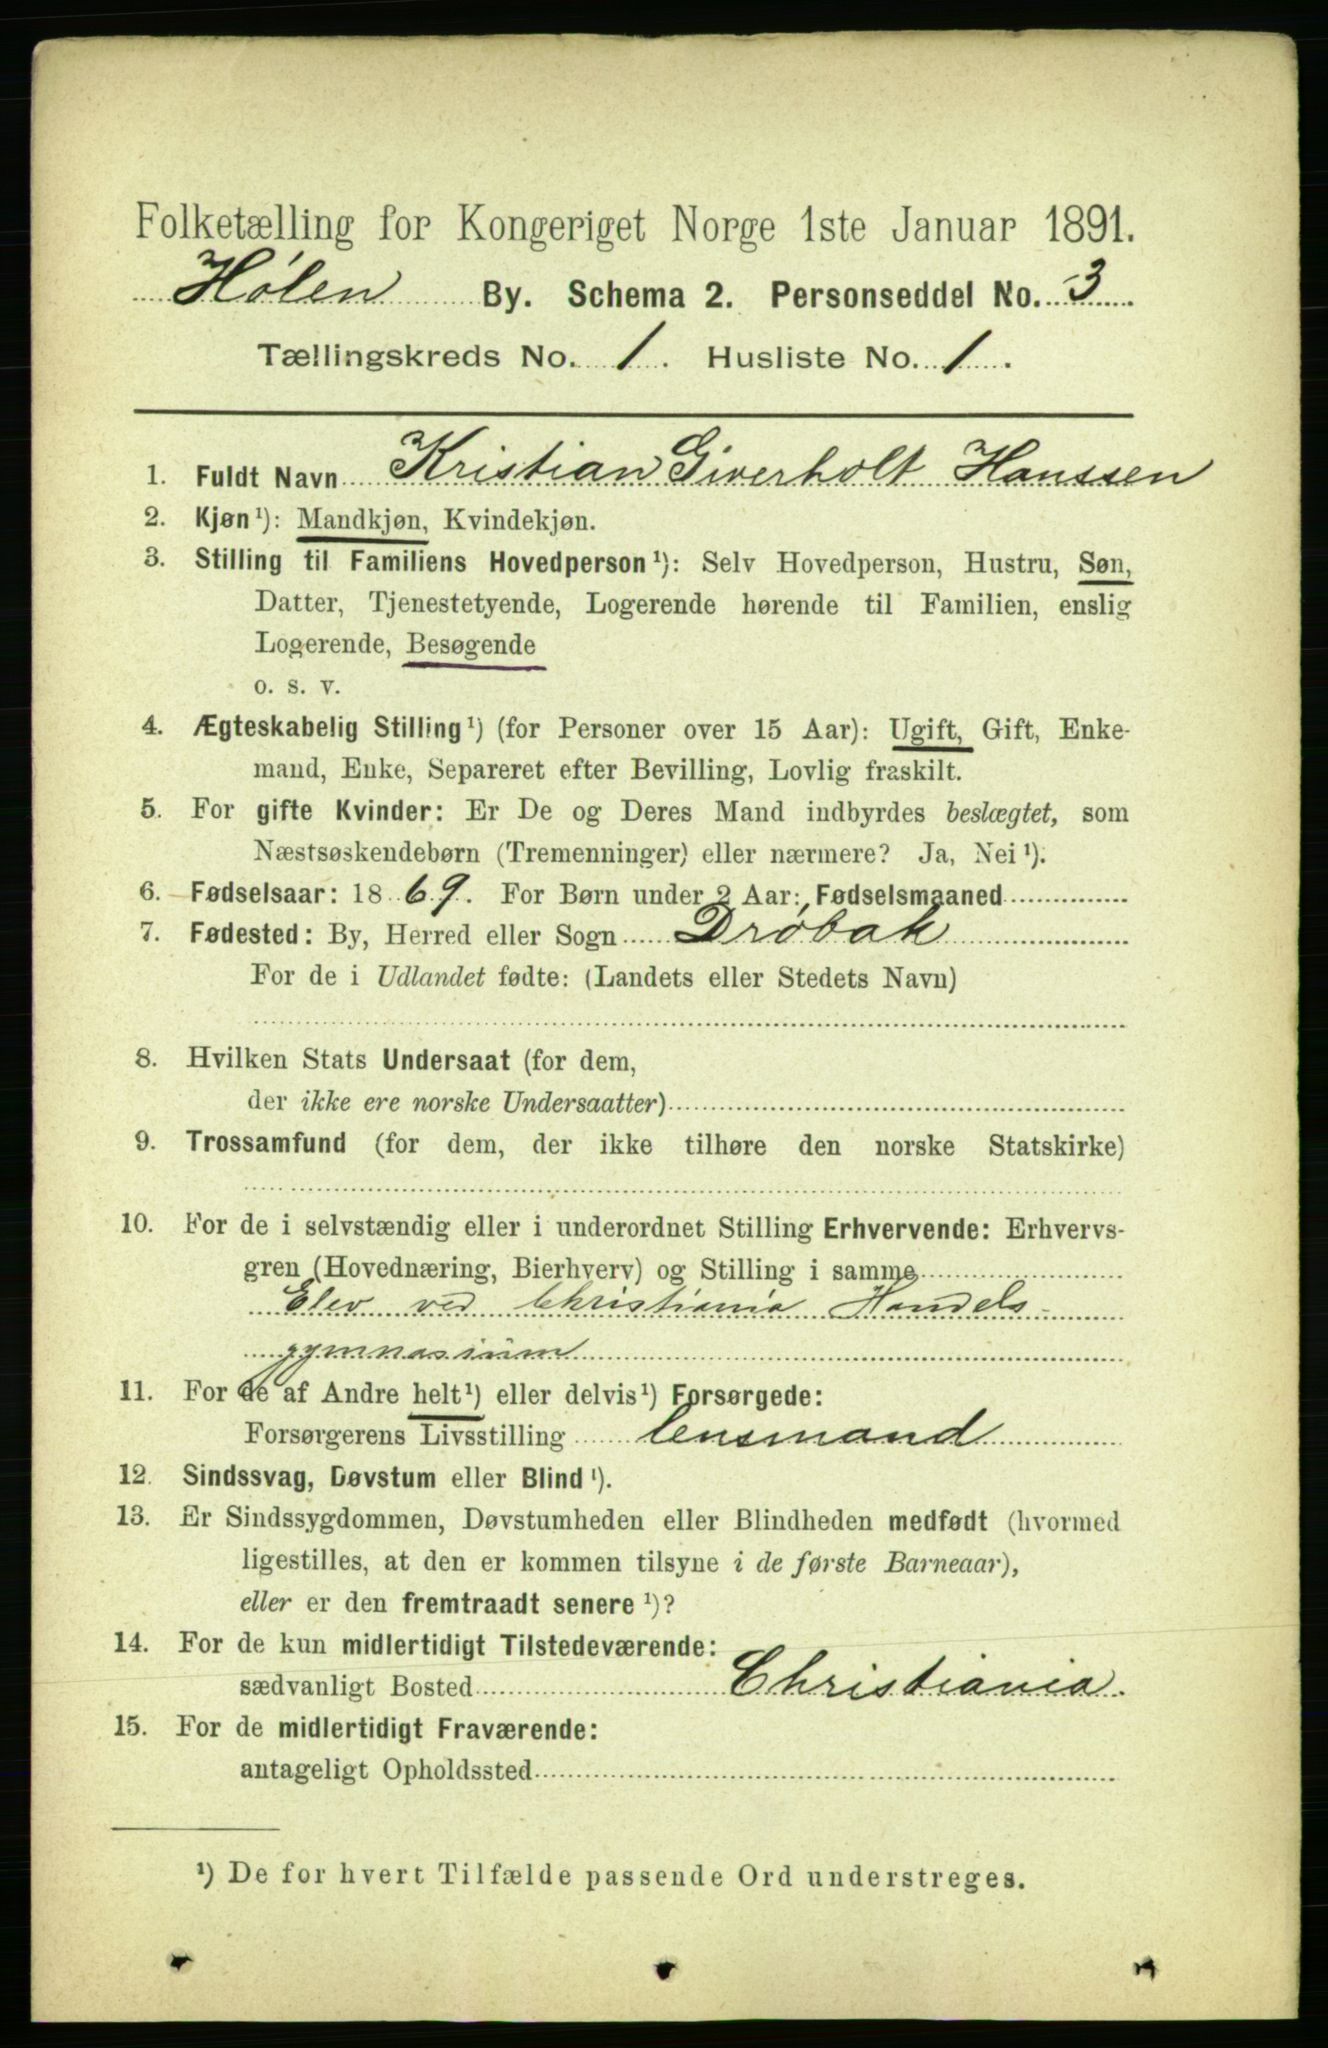 Folketælling for Kongeriget Norge 1ste Januar 1891.
Hølen By. Schema 2. Personseddel No. 3
Tællingskreds No. 1. Husliste No. 1.
1. Fuldt Navn Kristian Giverholt Hanssen
2. Kjøn¹): Mandkjøn, Kvindekjøn.
3. Stilling til Familiens Hovedperson¹): Selv Hovedperson, Hustru, Søn,
Datter, Tjenestetyende, Logerende hørende til Familien, enslig
Logerende, Besøgende
o. s. v.
4. Ægteskabelig Stilling¹) (for Personer over 15 Aar): Ugift, Gift, Enke-
mand, Enke, Separeret efter Bevilling, Lovlig fraskilt.
5. For gifte Kvinder: Er De og Deres Mand indbyrdes beslægtet, som
Næstsøskendebørn (Tremenninger) eller nærmere? Ja, Nei¹).
6. Fødselsaar: 1869. For Børn under 2 Aar: Fødselsmaaned
7. Fødested: By, Herred eller Sogn Drøbak
For de i Udlandet fødte: (Landets eller Stedets Navn)
8. Hvilken Stats Undersaat (for dem,
der ikke ere norske Undersaatter)
9. Trossamfund (for dem, der ikke tilhøre den norske Statskirke)
10. For de i selvstændig eller i underordnet Stilling Erhvervende: Erhvervs-
gren (Hovednæring, Bierhverv) og Stilling i samme
Elev ved Christiania Handels-
gymnasium
11. For de af Andre helt¹) eller delvis¹) Forsørgede:
Forsørgerens Livsstilling lensmand
12. Sindssvag, Døvstum eller Blind¹).
13. Er Sindssygdommen, Døvstumheden eller Blindheden medfødt (hvormed
ligestilles, at den er kommen tilsyne i de første Barneaar),
eller er den fremtraadt senere¹)?
14. For de kun midlertidigt Tilstedeværende:
sædvanligt Bosted Christiania.
15. For de midlertidigt Fraværende:
antageligt Opholdssted
¹) De for hvert Tilfælde passende Ord understreges.